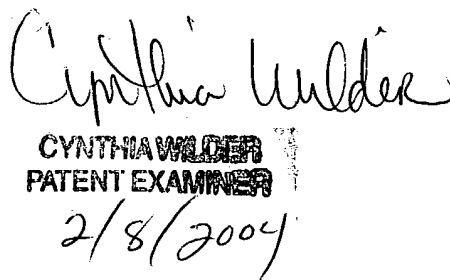 Cynthia Wilder
CYNTHIA WILDER
PATENT EXAMINER
2/8/2004